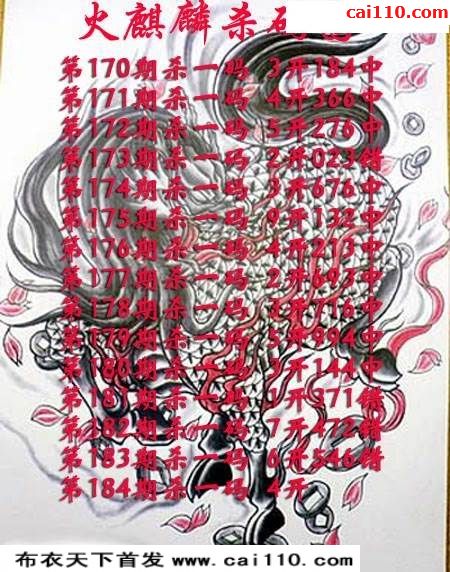 cai110.com
火麒麟杀码
第170期杀一码 3开184中
第171期杀一码 4开366中
第172期杀一码 5开276中
第173期杀一码 2开023错
第174期杀一码 3开676中
第175期杀一码 9开132中
第176期杀一码 4开213中
第177期杀一码 2开693中
第178期杀一码 3开716中
第179期杀一码 5开994中
第180期杀一码 3开144中
第181期杀一码 1开371错
第182期杀一码 7开472错
第183期杀一码 6开546错
第184期杀一码 4开
布衣天下首发 www.cai110.com